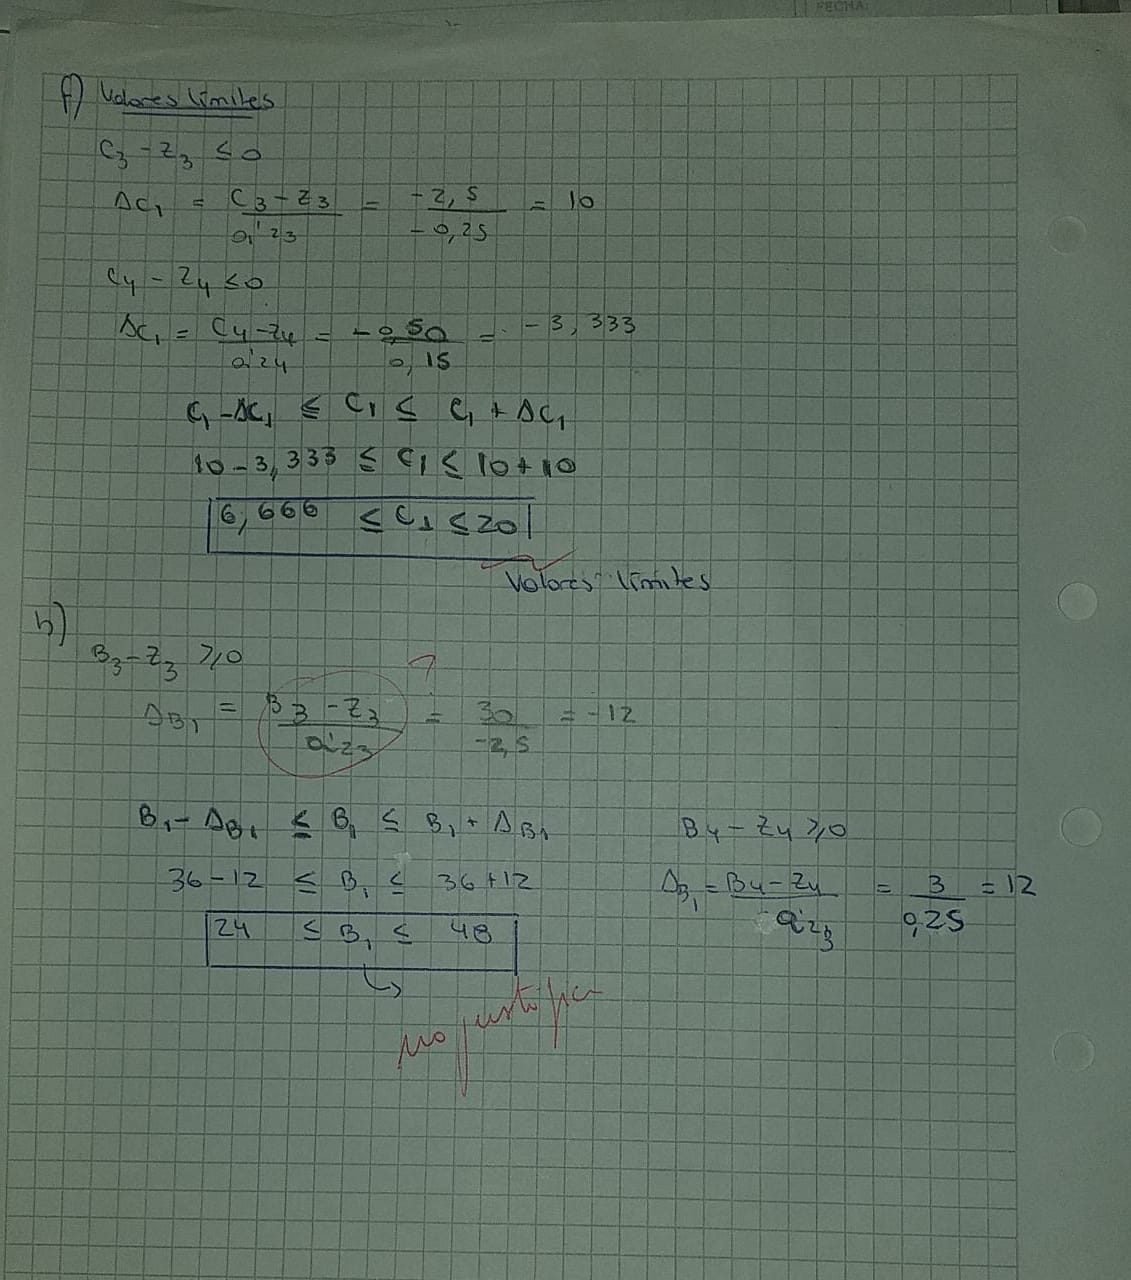 FECHA:
f) Valores límites
C3 - Z3 ≤ 0
ΔC1 = C3 - Z3 / a'23 = -2,5 / -0,25 = 10
C4 - Z4 ≤ 0
ΔC1 = C4 - Z4 / a'24 = -0,50 / 0,15 = -3,333
C1 - ΔC1 ≤ C1 ≤ C1 + ΔC1
10 - 3,333 ≤ C1 ≤ 10 + 10
6,666 ≤ C1 ≤ 20
Valores límites
h)
B3 - Z3 ≥ 0
ΔB1 = B3 - Z3 / a'23 = 30 / -2,5 = -12
?
B1 - ΔB1 ≤ B1 ≤ B1 + ΔB1
36 - 12 ≤ B1 ≤ 36 + 12
24 ≤ B1 ≤ 48
B4 - Z4 ≥ 0
ΔB1 = B4 - Z4 / a'23 = 3 / 0,25 = 12
no justifica